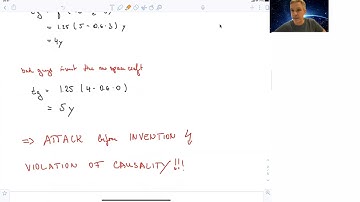 = 1.25 (5 - 0.6·3) y
= 4y
bad guys invent the new spacecraft
tg = 1.25 (4 - 0.6·0)
= 5 y
=> ATTACK before INVENTION ↯
VIOLATION OF CAUSALITY!!!